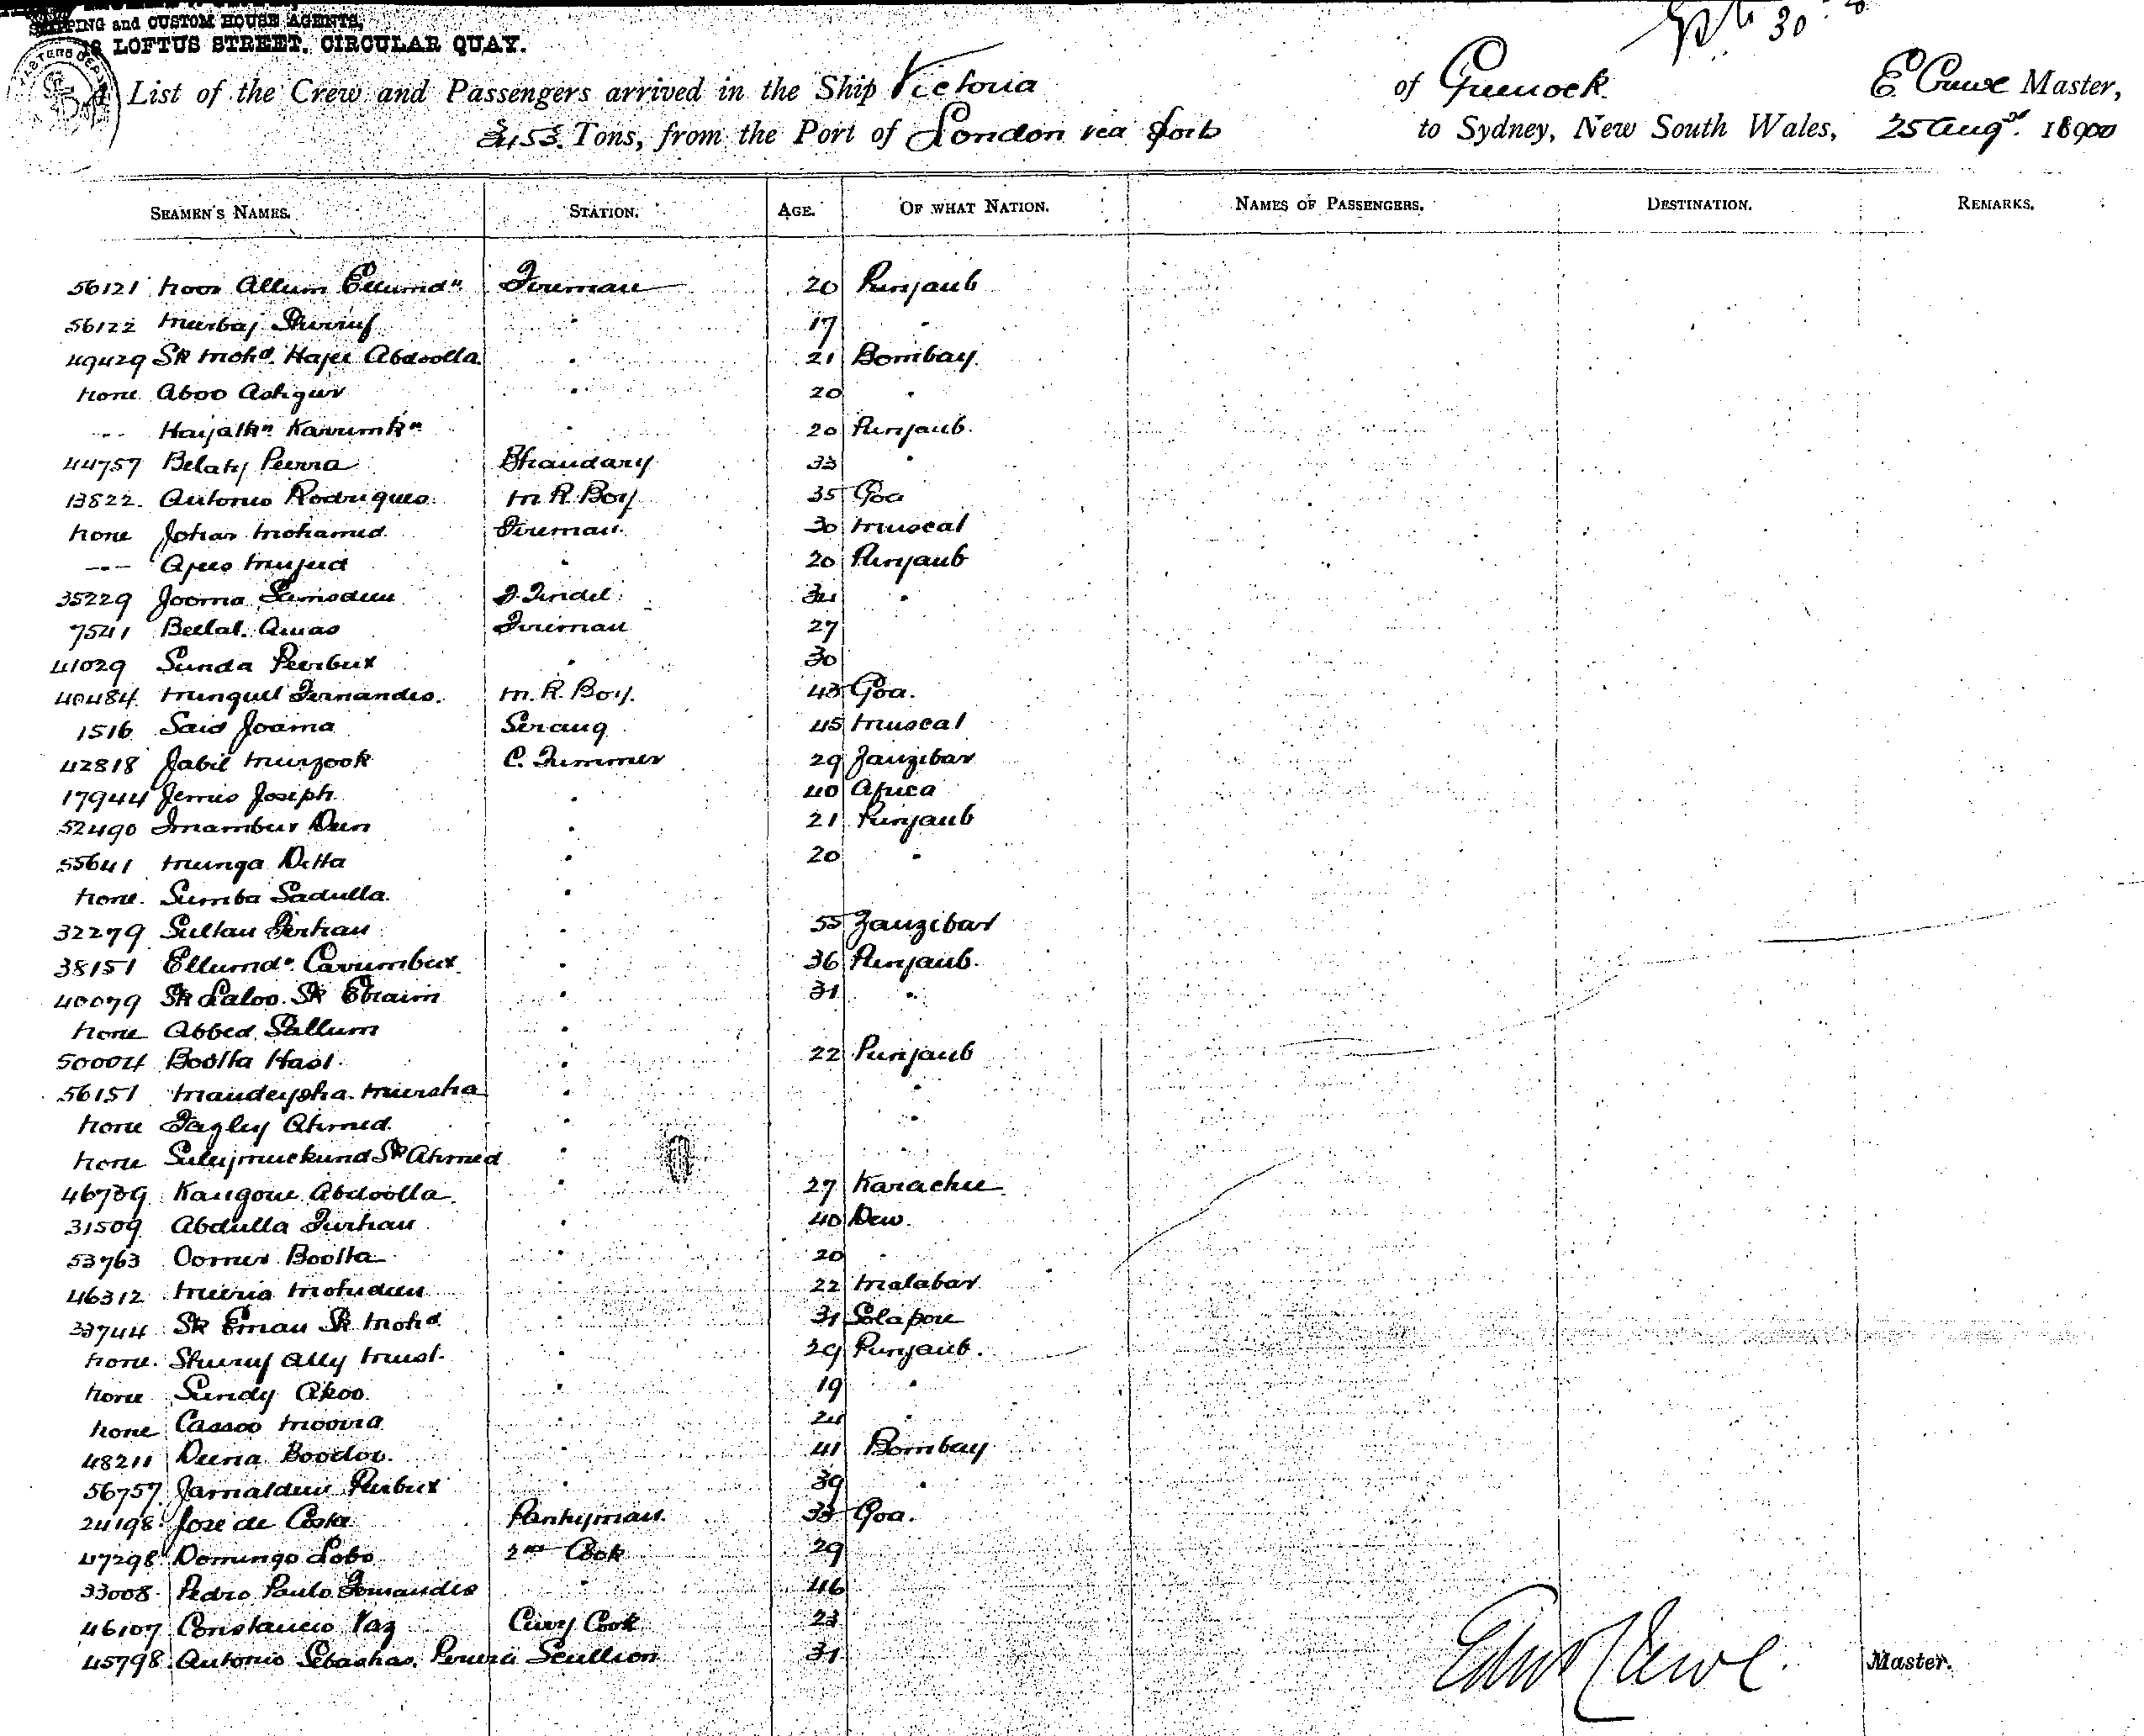 SHIPPING and CUSTOM HOUSE AGENTS,
18 LOFTUS STREET, CIRCULAR QUAY.
30
A List of the Crew and Passengers arrived in the Ship Victoria of Greenock E Crewe Master,
3453 Tons, from the Port of London via Ports to Sydney, New South Wales, 25 Augst 1900
SEAMEN'S NAMES. STATION. AGE. OF WHAT NATION. NAMES OF PASSENGERS. DESTINATION. REMARKS.
56121 Noor Allum Ellumdn Fireman 20 Punjaub
56122 Meerbaj Shurruf " 17 "
49429 Sk Mohd. Hajee Abdoolla " 21 Bombay.
None Aboo Ashgur " 20 "
-- Hayatkn Karrumkn " 20 Punjaub.
44757 Belaty Peerra Bhandary 33 "
13822 Antonio Rodrigues M R Boy 35 Goa
None Johar Mohamed Fireman. 30 Muscat
--- 20 Punjaub
35229 Jooma Samodeen T. Tindel 34 "
7541 Bellal Amas Fireman 27
41029 Sunda Peerbux " 30
40484 Minguel Fernandes. M. R. Boy. 43 Goa.
1516 Said Jooma Serang 45 Muscat
42818 Jabil Murzook C. Trimmer 29 Zanzibar
17944 Jemis Joseph " 40 Africa
52490 Imambux Deen " 21 Punjaub
55641 Munga Ditta " 20 "
None. Sumba Sadulla "
32279 Sultan Ferhan " 55 Zanzibar
38151 Ellumdn. Carrumbux " 36 Punjaub.
40079 Sk Laloo Sk Ebraim " 31 "
None Abbed Sallum "
50004 Bootta Hast " 22 Punjaub
56151 Maudeysha Meersha " "
None Fazley Ahmed " "
None Suleymuckund Sk Ahmed " "
46739 Kangoni Abdoolla " 27 Karachee
31509 Abdulla Furhan " 40 Dew.
53763 Oomer Bootta " 20 "
46312 Meeria Mohudeen " 22 Malabar
33744 Sk Eman Sk Mohd " 31 Solapore
None. Shuruf Ally Must. " 29 Punjaub.
None Sundy Akoo " 19 "
None Cassoo Moosa " 24 "
48211 Deena Boodoo " 41 Bombay
56757 Jamaldeen Peerbux " 39 "
24198 Jose de Costa Pantryman. 33 Goa.
47298 Domingo Lobo 2nd Cook 29
33008 Pedro Paulo Fernandes " 46
46107 Constancio Vaz Curry Cook 23
45798 Antonio Sebastiao Pereira Scullion 31
Edwd Crewe Master.